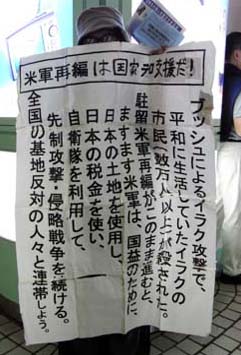 米軍再編は国家テロ支援だ!
ブッシュによるイラク攻撃で、
平和に生活していたイラクの
市民(数万人以上)が殺された。
駐留米軍再編がこのまま進むと、
ますます米軍は、国益のために
日本の土地を使用し、
日本の税金を使い、
自衛隊を利用して、
先制攻撃・侵略戦争を続ける。
全国の基地反対の人々と連帯しよう。